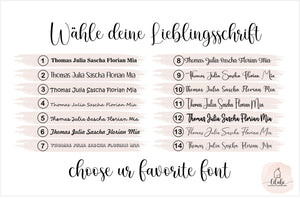 Wähle deine Lieblingsschrift
1 Thomas Julia Sascha Florian Mia
2 Thomas Julia Sascha Florian Mia
3 Thomas Julia Sascha Florian Mia
4 Thomas Julia Sascha Florian Mia
5 Thomas Julia Sascha Florian Mia
6 Thomas Julia Sascha Florian Mia
7 Thomas Julia Sascha Florian Mia
8 Thomas Julia Sascha Florian Mia
9 Thomas Julia Sascha Florian Mia
10 Thomas Julia Sascha Florian Mia
11 Thomas Julia Sascha Florian Mia
12 Thomas Julia Sascha Florian Mia
13 Thomas Julia Sascha Florian Mia
14 Thomas Julia Sascha Florian Mia
choose ur favorite font